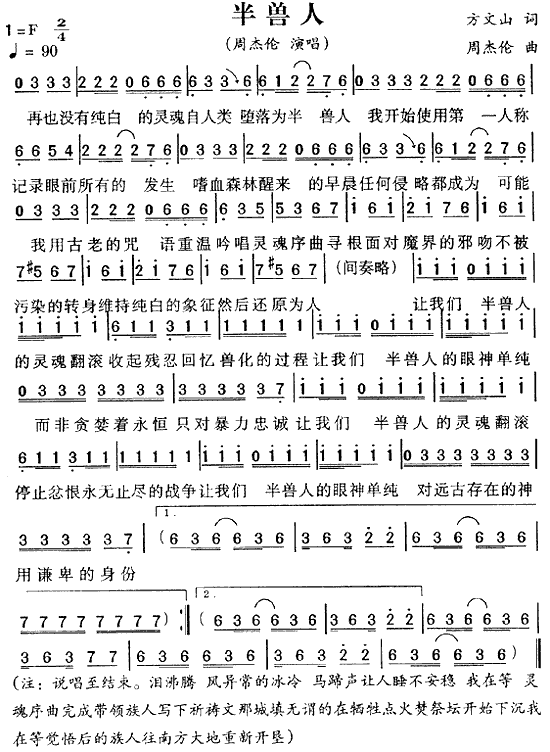 半兽人
1=F 2/4
♩= 90
(周杰伦 演唱)
方文山 词
周杰伦 曲
0 3 3 3 | 2 2 2 0 6 6 6 | 6 3 3 6 | 6 1 2 2 7 6 | 0 3 3 3 | 2 2 2 0 6 6 6 |
再也没有纯白 的灵魂自人类 堕落为半 兽人 我开始使用第 一人称
6 6 5 4 | 2 2 2 7 6 | 0 3 3 3 | 2 2 2 0 6 6 6 | 6 3 3 6 | 6 1 2 2 7 6 |
记录眼前所有的 发生 嗜血森林醒来 的早晨任何侵 略都成为 可能
0 3 3 3 | 2 2 2 0 6 6 6 | 0 6 6 6 5 6 | 5 3 6 7 | 1 6 1 | 2 1 6 1 |
我用古老的咒 语重温吟唱灵魂序曲寻根面对魔界的邪吻不被
7 #5 6 7 | 1 6 1 | 2 1 2 1 | 7 #5 6 7 | (间奏略) | 1 1 1 0 1 1 1 |
污染的转身维持纯白的象征然后还原为人 让我们 半兽人
的灵魂翻滚收起残忍回忆兽化的过程让我们 半兽人的眼神单纯
而非贪婪着永恒只对暴力忠诚让我们 半兽人的灵魂翻滚
停止忿恨永无止尽的战争让我们 半兽人的眼神单纯 对远古存在的神
1.
3 3 3 3 3 7 | (6 3 6 6 3 6 | 3 6 3 2 2 | 6 3 6 6 3 6 |
用谦卑的身份
2.
7 7 7 7 7 7 7 7) :‖ (6 3 6 6 3 6 | 3 6 3 2 2 | 6 3 6 6 3 6 |
3 6 3 7 7 | 6 3 6 6 3 6 | 3 6 3 2 2 | 6 3 6 6 3 6) ‖
(注：说唱至结束。泪沸腾 风异常的冰冷 马蹄声让人睡不安稳 我在等 灵
魂序曲完成带领族人写下祈祷文那城填无谓的在牺牲点火焚祭坛开始下沉我
在等觉悟后的族人往南方大地重新开垦)